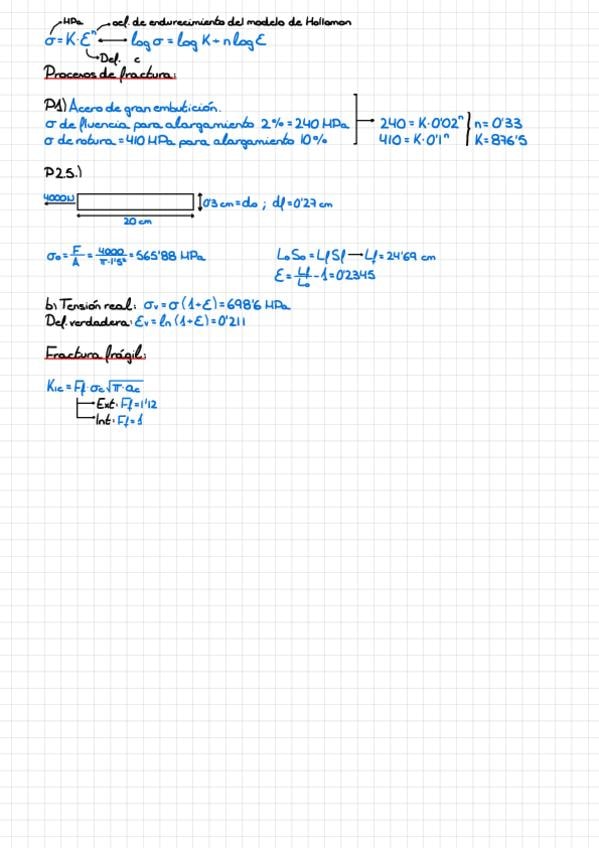 MPa coef. de endurecimiento del modelo de Holloman
σ = K·εⁿ ⟷ log σ = log K + n log ε
Def. c
Procesos de fractura:
P1) Acero de gran embutición.
σ de fluencia para alargamiento 2% = 240 MPa → 240 = K·0'02ⁿ } n = 0'33
σ de rotura = 410 MPa para alargamiento 10% 410 = K·0'1ⁿ } K = 876'5
P2.5.)
4000N 0'3 cm = d₀ ; df = 0'27 cm
20 cm
σ₀ = F/A = 4000/π·1'5² = 565'88 MPa L₀S₀ = LfSf → Lf = 24'69 cm
ε = Lf/L₀ - 1 = 0'2345
b) Tensión real: σᵥ = σ (1+ε) = 698'6 MPa
Def. verdadera: εᵥ = ln (1+ε) = 0'211
Fractura frágil:
K₁c = Ff·σc√π·ac
Ext: Ff = 1'12
Int: Ff = 1